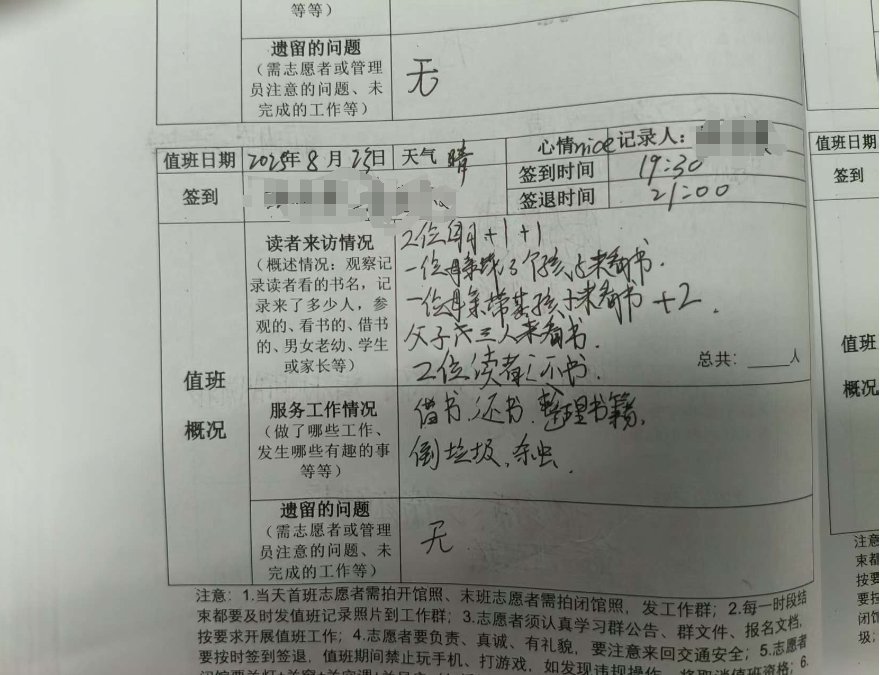 等等）
遗留的问题
（需志愿者或管理
员注意的问题、未
完成的工作等）
无
值班日期 2025年 8 月 23日 天气 晴 心情nice 记录人：
值班日期
签到 签到时间 19:30
签到
签退时间 21:00
读者来访情况
（概述情况：观察记
录读者看的书名，记
录来了多少人，参
观的、看书的、借书
的、男女老幼、学生
或家长等）
2位 +1+1
一位 孩子来看书.
一位 带 孩子来看书 +2.
父子 三人来看书
2位读者还书.
总共： 人
值班
概况
值班
概况
服务工作情况
（做了哪些工作、
发生哪些有趣的事
等等）
借书.还书.整理书籍,
倒垃圾,杀虫.
遗留的问题
（需志愿者或管理
员注意的问题、未
完成的工作等）
无
注意：1.当天首班志愿者需拍开馆照、末班志愿者需拍闭馆照，发工作群；2.每一时段结
束都要及时发值班记录照片到工作群；3.志愿者须认真学习群公告、群文件、报名文档，
按要求开展值班工作；4.志愿者要负责、真诚、有礼貌，要注意来回交通安全；5.志愿者
要按时签到签退，值班期间禁止玩手机、打游戏，如发现违规操作，将取消值班资格；6.
注意
束都
按要
要按
闭馆
圾；